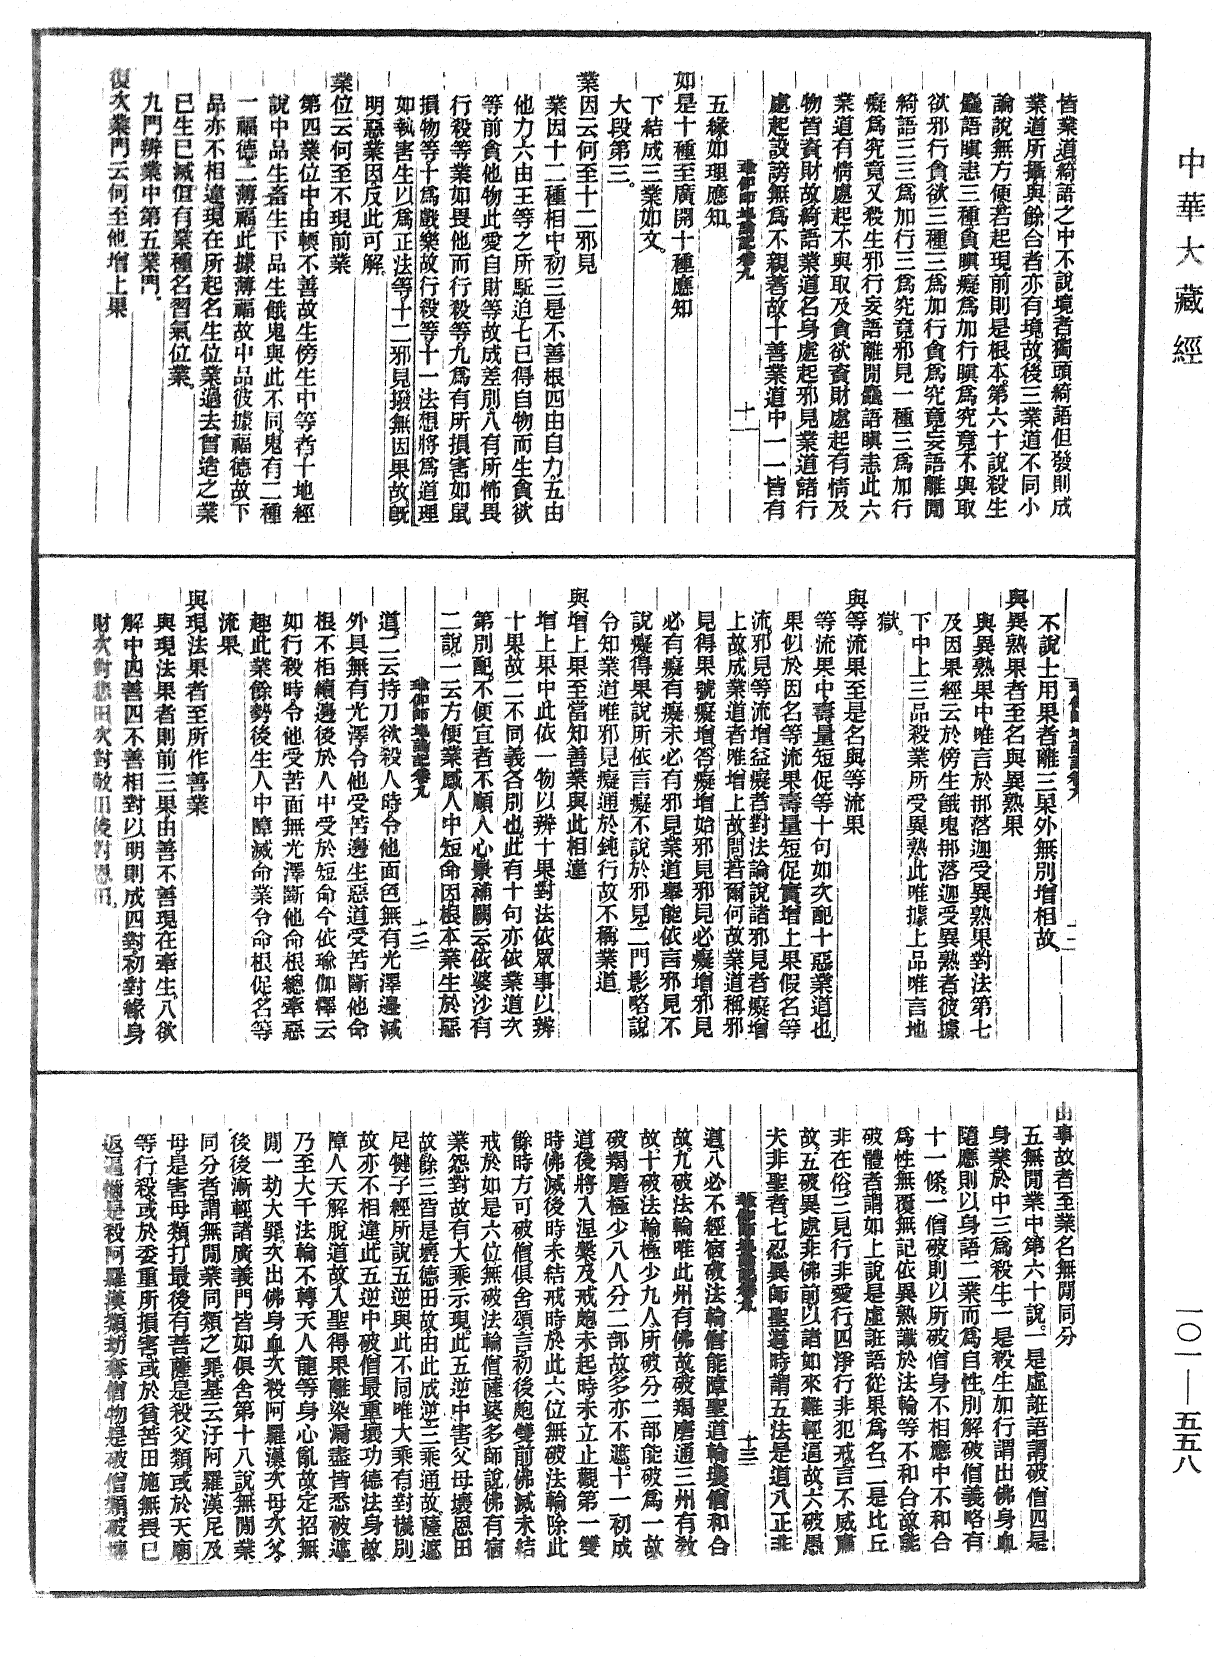 中華大藏經
一〇一—五五八
皆業道綺語之中不說境者獨頭綺語但發則成
業道所攝與餘合者亦有境故後三業道不同小
論說無方便若起現前則是根本第六十說殺生
麤語瞋恚三種貪瞋癡為加行瞋為究竟不與取
欲邪行貪欲三種三為加行貪為究竟妄語離間
綺語三三為加行三為究竟邪見一種三為加行
癡為究竟又殺生邪行妄語離間麤語瞋恚此六
業道有情處起不與取及貪欲資財處起有情及
物皆資財故綺語業道名身處起邪見業道諸行
處起設謗無為不親著故十善業道中一一皆有
瑜伽師地論記卷九 十一
五緣如理應知。
如是十種至廣開十種應知
下結成三業如文。
大段第三。
業因云何至十二邪見
業因十二種相中初三是不善根四由自力五由
他力六由王等之所駈迫七已得自物而生貪欲
等前貪他物此愛自財等故成差別八有所怖畏
行殺等業如畏他而行殺等九為有所損害如鼠
損物等十為戲樂故行殺等十一法想將為道理
如執害生以為正法等十二邪見撥無因果故旣
明惡業因反此可解。
業位云何至不現前業
第四業位中由輭不善故生傍生中等者十地經
說中品生畜生下品生餓鬼與此不同鬼有二種
一福德二薄福此據薄福故中品彼據福德故下
品亦不相違現在所起名生位業過去曾造之業
已生已滅但有業種名習氣位業。
九門辨業中第五業門。
復次業門云何至他增上果
不說士用果者離三果外無別增相故。
瑜伽師地論記卷九 十二
與異熟果者至名與異熟果
與異熟果中唯言於那落迦受異熟果對法第七
及因果經云於傍生餓鬼那落迦受異熟者彼據
下中上三品殺業所受異熟此唯據上品唯言地
獄。
與等流果至是名與等流果
等流果中壽量短促等十句如次配十惡業道也
果似於因名等流果壽量短促實增上果假名等
流邪見等流增益癡者對法論說諸邪見者癡增
上故成業道者唯增上故問若爾何故業道稱邪
見得果號癡增答癡增始邪見邪見必癡增邪見
必有癡有癡未必有邪見業道舉能依言邪見不
說癡得果說所依言癡不說於邪見二門影略說
令知業道唯邪見癡通於鈍行故不稱業道
與增上果至當知善業與此相違
增上果中此依一物以辨十果對法依眾事以辨
十果故二不同義各別也此有十句亦依業道次
第別配不便宜者不順人心景補闕云依婆沙有
二說一云方便業感人中短命因根本業生於惡
瑜伽師地論記卷九 十二
道二云持刀欲殺人時令他面色無有光澤邊減
外具無有光澤令他受苦邊生惡道受苦斷他命
根不相續邊後於人中受於短命今依瑜伽釋云
如行殺時令他受苦面無光澤斷他命根總牽惡
趣此業餘勢後生人中障滅命業令命根促名等
流果
與現法果者至所作善業
與現法果者則前三果由善不善現在牽生八欲
解中四善四不善相對以明則成四對初對緣身
財次對悲田次對敬田後對恩田。
由事故者至業名無間同分
五無間業中第六十說一是虛誑語謂破僧四是
身業於中三為殺生一是殺生加行謂出佛身血
隨應則以身語二業而為自性別解破僧義略有
十一條一僧破則以所破僧身不相應中不和合
為性無覆無記依異熟識於法輪等不和合故能
破體者謂如上說是虛誑語從果為名二是比丘
非在俗三見行非愛行四淨行非犯戒言不威肅
故五破異處非佛前以諸如來難輕逼故六破愚
夫非聖者七忍異師聖道時謂五法是道八正非
瑜伽師地論記卷九 十三
道八必不經宿破法輪僧能障聖道輪壞僧和合
故九破法輪唯此州有佛故破羯磨通三州有教
故十破法輪極少九人所破分二部能破為一故
破羯磨極少八人分二部故多亦不遮十一初成
道後將入涅槃及戒皰未起時未立止觀第一雙
時佛滅後時未結戒時於此六位無破法輪除此
餘時方可破僧俱舍頌言初後皰雙前佛滅未結
戒於如是六位無破法輪僧薩婆多師說佛有宿
業怨對故有大乘示現此五逆中害父母壞恩田
故餘三皆是壞德田故由此成逆三乘通故薩遮
尼犍子經所說五逆與此不同唯大乘有對機別
故亦不相違此五逆中破僧最重壞功德法身故
障人天解脫道故入聖得果離染漏盡皆悉被遮
乃至大千法輪不轉天人龍等身心亂故定招無
間一劫大罪次出佛身血次殺阿羅漢次母次父
後後漸輕諸廣義門皆如俱舍第十八說無間業
同分者謂無間業同類之罪基云汙阿羅漢尼及
母是害母類打最後有菩薩是殺父類或於天廟
等行殺或於委重所損害或於貧苦田施無畏已
返逼惱是殺阿羅漢類劫奪僧物是破僧類破壞